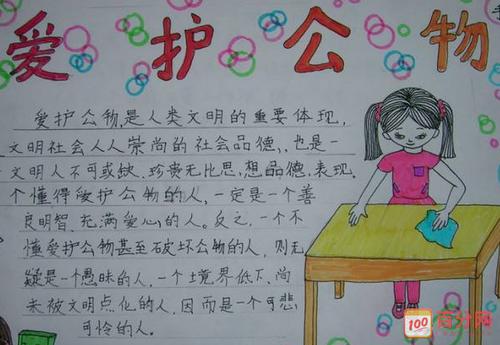 爱护公物
爱护公物,是人类文明的重要体现,
文明社会人人崇尚的社会品德,、也是一
文明人不可或缺、珍贵无比思,想品德、表现,
个懂得爱护公物的人,一定是一个善
良明智、充满爱心的人。反之,一个不
懂爱护公物甚至破坏公物的人,则无
疑是一个愚昧的人,一个境界低下、尚
未被文明点化的人,因而是一个可悲
可怜的人。
100
百分网